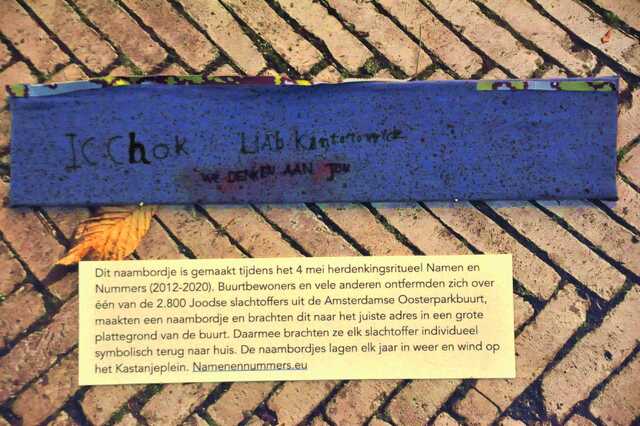 ICChok LIAb Kantorowick
WE DENKEN AAN JOU
Dit naambordje is gemaakt tijdens het 4 mei herdenkingsritueel Namen en
Nummers (2012-2020). Buurtbewoners en vele anderen ontfermden zich over
één van de 2.800 Joodse slachtoffers uit de Amsterdamse Oosterparkbuurt,
maakten een naambordje en brachten dit naar het juiste adres in een grote
plattegrond van de buurt. Daarmee brachten ze elk slachtoffer individueel
symbolisch terug naar huis. De naambordjes lagen elk jaar in weer en wind op
het Kastanjeplein. Namenennummers.eu